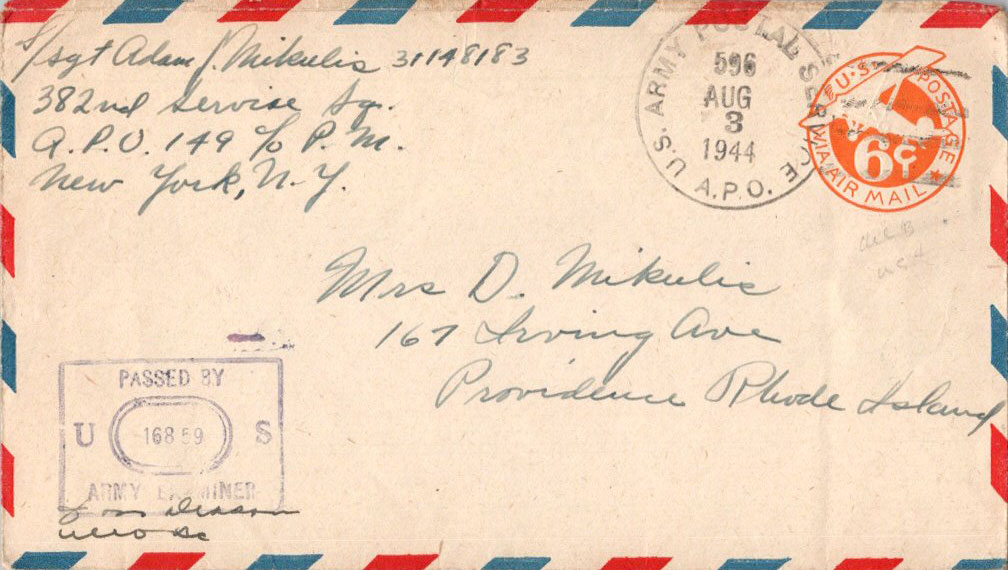 S/sgt Adam J. Mikulis 31148183
382nd Service Sq.
A.P.O. 149 c/o P.M.
New York, N.Y.
U.S. ARMY POSTAL SERVICE
596
AUG
3
1944
A.P.O.
U.S. POSTAGE
6¢
VIA AIR MAIL
Mrs D. Mikulis
167 Irving Ave
Providence Rhode Island
PASSED BY
U 16859 S
ARMY EXAMINER